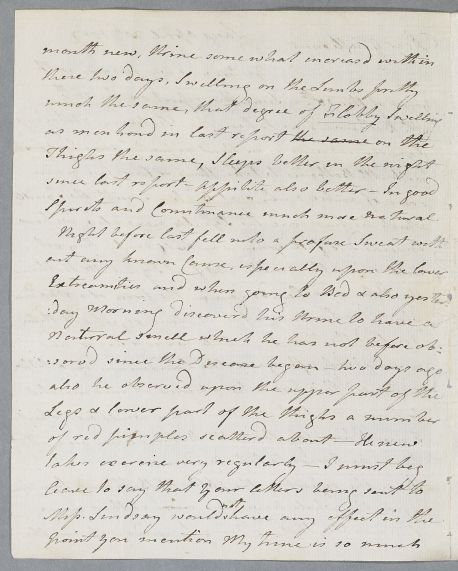 month now, Urine somewhat increasd within
these two days, Swelling on the Limbs pretty
much the same, that degree of flabby Swelling
as mentiond in last report the same on the
Thighs the same, Sleeps better in the night
since last report - appitite also better - In good
Spirits and Countinance much more natural
Night before last fell into a profuse Sweat with
out any known Cause, especially upon the lower
Extreamities and when going to Bed & also yester
:day Morning discoverd his Urine to have a
Natural smell which he has not before ob:
:servd since the Disease began - two days ago
also he observed upon the upper part of the
Legs & lower part of the thighs a number
of red pimples scatterd about - He now
takes exercise very regularly - I must beg
leave to say that your letters being sent to
Miss. Lindsay would not have any effect in the
point you mention My time is so much